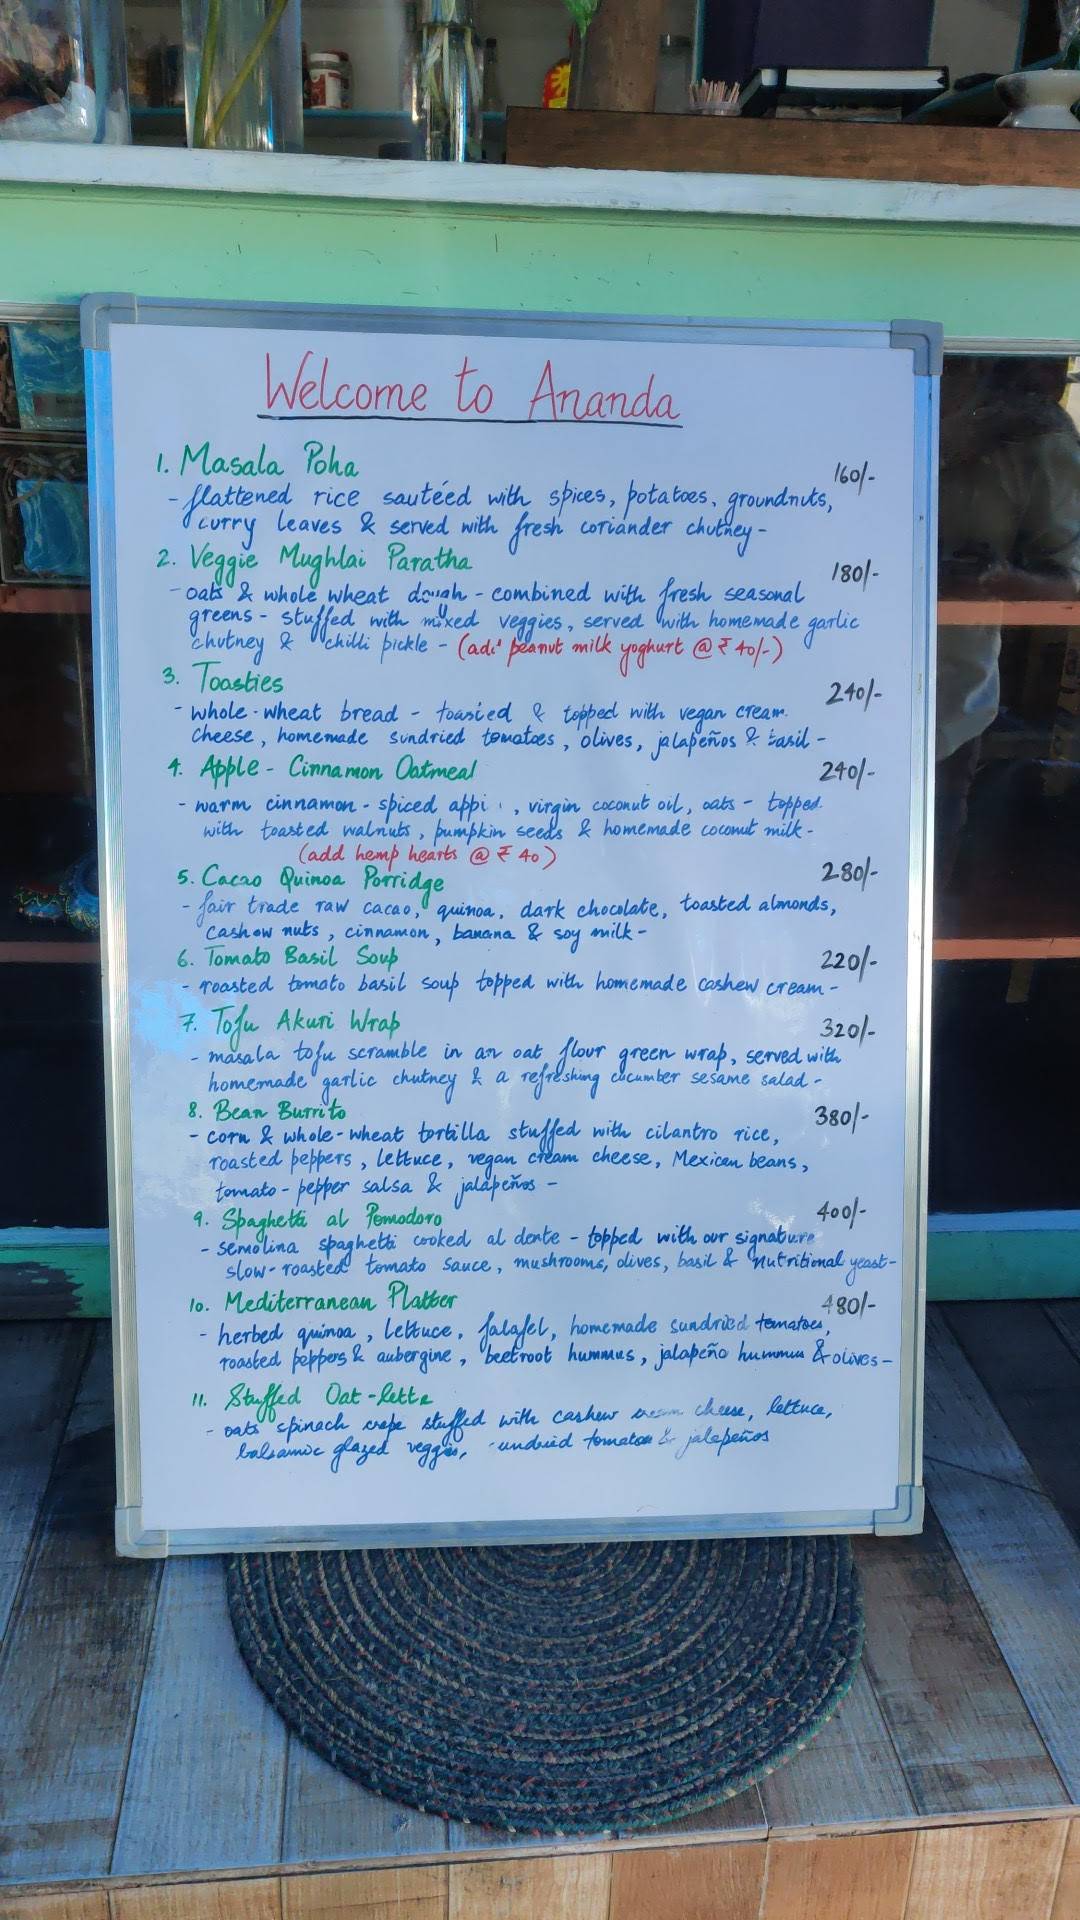 Welcome to Ananda
1. Masala Poha 160/-
- flattened rice sautéed with spices, potatoes, groundnuts,
curry leaves & served with fresh coriander chutney -
2. Veggie Mughlai Paratha 180/-
- oats & whole wheat dough - combined with fresh seasonal
greens - stuffed with mixed veggies, served with homemade garlic
chutney & chilli pickle - (add peanut milk yoghurt @ ₹ 40/-)
3. Toasties 240/-
- whole-wheat bread - toasted & topped with vegan cream
cheese, homemade sundried tomatoes, olives, jalapeños & basil -
4. Apple - Cinnamon Oatmeal 240/-
- warm cinnamon - spiced , virgin coconut oil, oats - topped
with toasted walnuts, pumpkin seeds & homemade coconut milk -
(add hemp hearts @ ₹ 40)
5. Cacao Quinoa Porridge 280/-
- fair trade raw cacao, quinoa, dark chocolate, toasted almonds,
cashew nuts, cinnamon, banana & soy milk -
6. Tomato Basil Soup 220/-
- roasted tomato basil soup topped with homemade cashew cream -
7. Tofu Akuri Wrap 320/-
- masala tofu scramble in an oat flour green wrap, served with
homemade garlic chutney & a refreshing cucumber sesame salad -
8. Bean Burrito 380/-
- corn & whole-wheat tortilla stuffed with cilantro rice,
roasted peppers, lettuce, vegan cream cheese, Mexican beans,
tomato - pepper salsa & jalapeños -
9. Spaghetti al Pomodoro 400/-
- semolina spaghetti cooked al dente - topped with our signature
slow-roasted tomato sauce, mushrooms, olives, basil & nutritional yeast -
10. Mediterranean Platter 480/-
- herbed quinoa, lettuce, falafel, homemade sundried tomatoes,
roasted peppers & aubergine, beetroot hummus, jalapeño hummus & olives -
11. Stuffed Oat-lette
- oats spinach crepe stuffed with cashew cream cheese, lettuce,
balsamic glazed veggies, sundried tomatoes & jalapeños